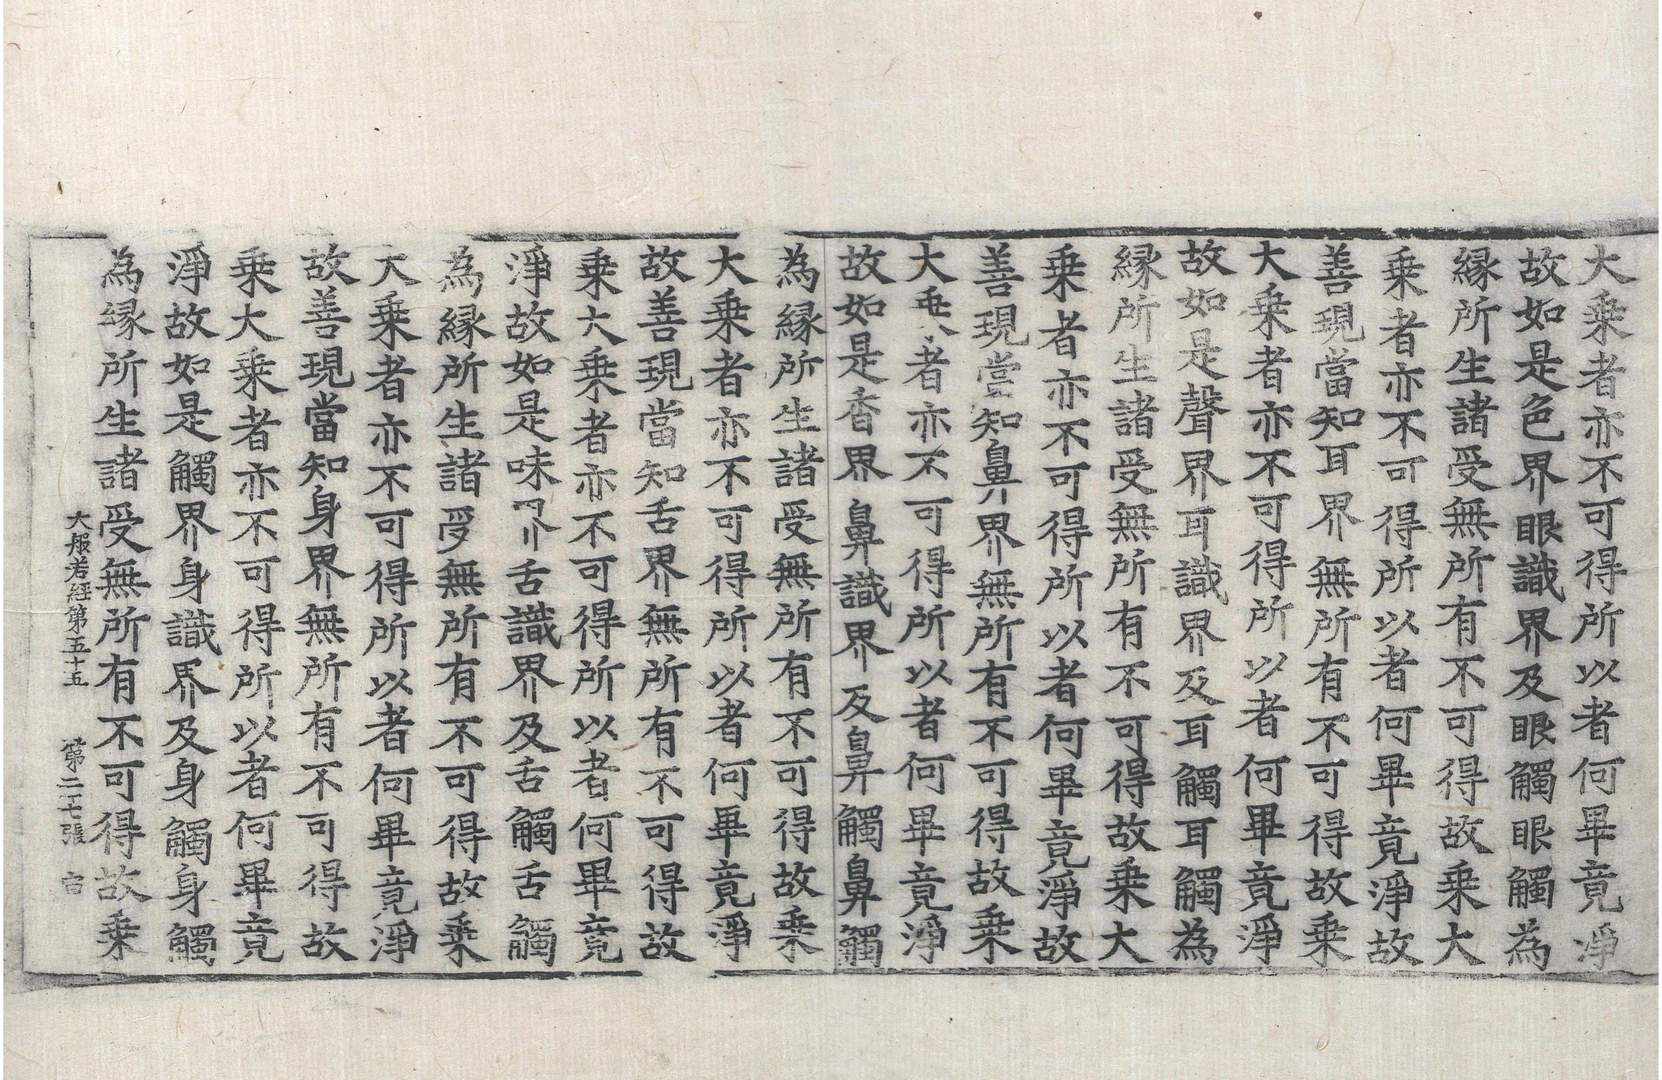 大乗者亦不可得所以者何畢竟淨
故如是色界眼識界及眼觸眼觸為
緣所生諸受無所有不可得故乗大
乗者亦不可得所以者何畢竟淨故
善現當知耳界無所有不可得故乗
大乗者亦不可得所以者何畢竟淨
故如是聲界耳識界及耳觸耳觸為
緣所生諸受無所有不可得故乗大
乗者亦不可得所以者何畢竟淨故
善現當知鼻界無所有不可得故乗
大乗者亦不可得所以者何畢竟淨
故如是香界鼻識界及鼻觸鼻觸
為緣所生諸受無所有不可得故乗
大乗者亦不可得所以者何畢竟淨
故善現當知舌界無所有不可得故
乗大乗者亦不可得所以者何畢竟
淨故如是味界舌識界及舌觸舌觸
為緣所生諸受無所有不可得故乗
大乗者亦不可得所以者何畢竟淨
故善現當知身界無所有不可得故
乗大乗者亦不可得所以者何畢竟
淨故如是觸界身識界及身觸身觸
為緣所生諸受無所有不可得故乗
大般若經第五十五 第二十七張